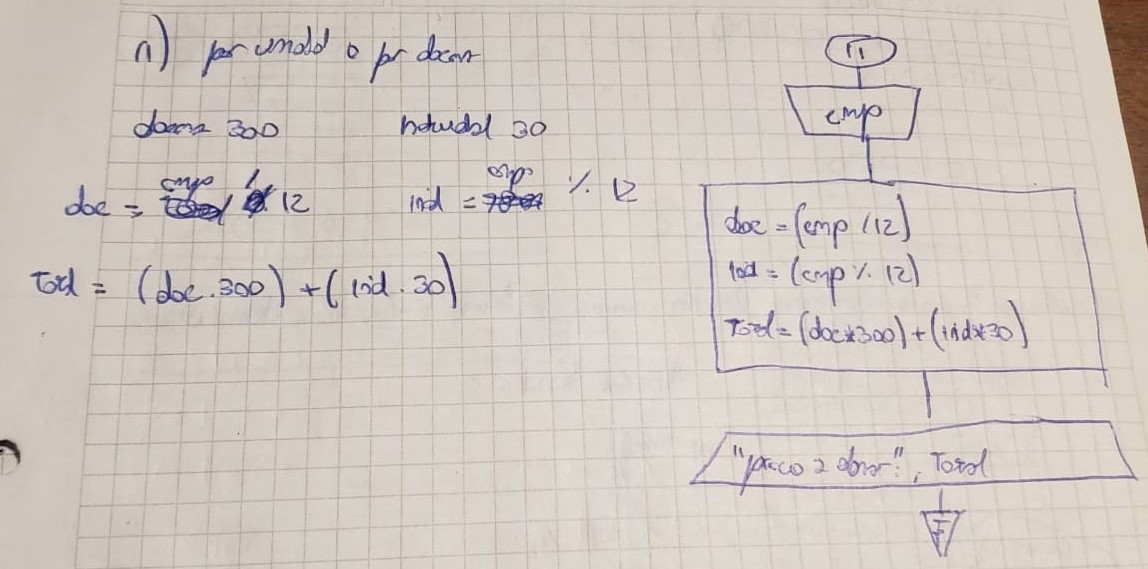 11) por unidad o por docena
docena 300 individual 30
doc = cmp / 12 ind = cmp % 12
Total = (doc . 300) + (ind . 30)
11
cmp
doc = (cmp / 12)
ind = (cmp % 12)
Total = (doc*300) + (ind*30)
"precio a abonar:", Total
F